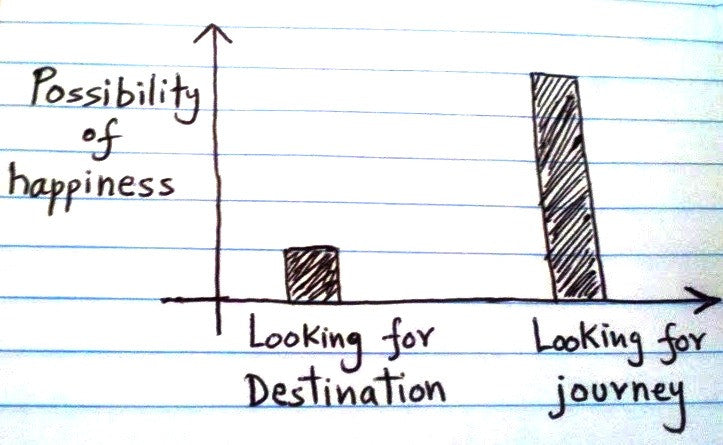 Possibility
of
happiness
Looking for
Destination
Looking for
journey